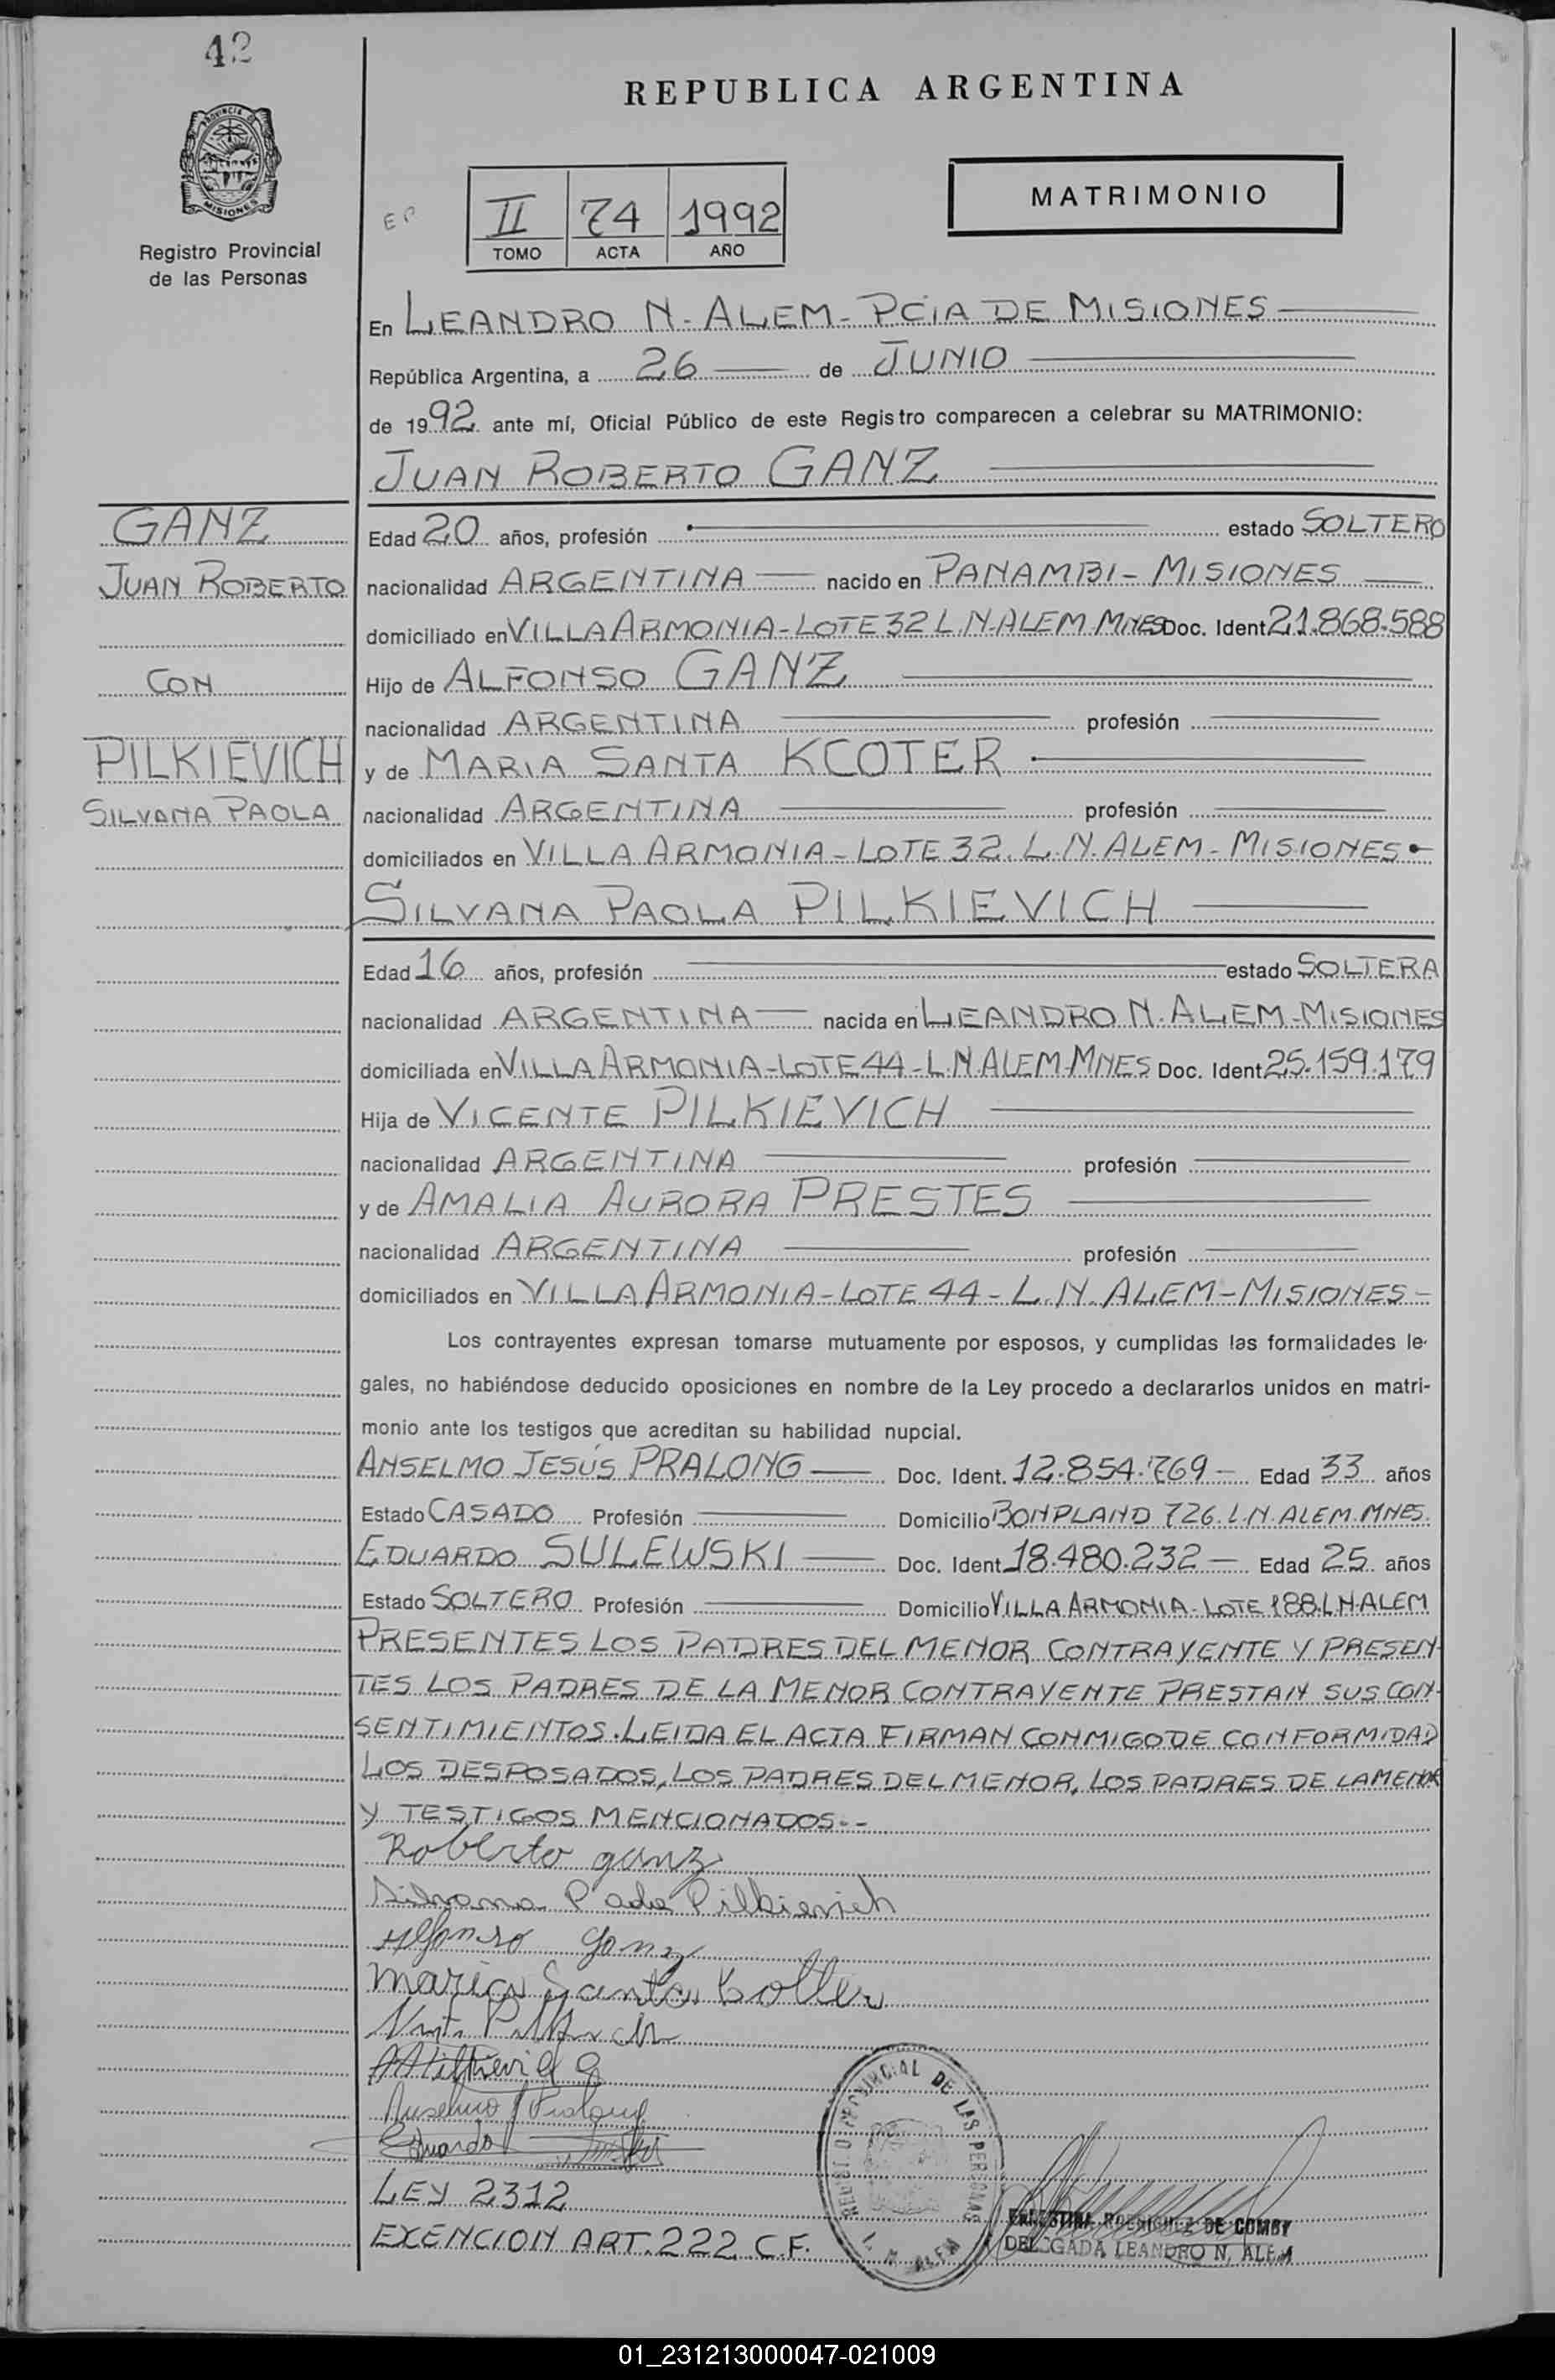 42
REPUBLICA ARGENTINA
PROVINCIA DE
MISIONES
Registro Provincial
de las Personas
II 74 1992
TOMO ACTA AÑO
MATRIMONIO
En LEANDRO N. ALEM - PCIA DE MISIONES
República Argentina, a 26 de JUNIO
de 1992 ante mí, Oficial Público de este Registro comparecen a celebrar su MATRIMONIO:
JUAN ROBERTO GANZ
GANZ
JUAN ROBERTO
CON
PILKIEVICH
SILVANA PAOLA
Edad 20 años, profesión estado SOLTERO
nacionalidad ARGENTINA nacido en PANAMBI - MISIONES
domiciliado en VILLA ARMONIA - LOTE 32 L.N. ALEM MNES Doc. Ident 21.868.588
Hijo de ALFONSO GANZ
nacionalidad ARGENTINA profesión
y de MARIA SANTA KCOTER
nacionalidad ARGENTINA profesión
domiciliados en VILLA ARMONIA - LOTE 32. L.N. ALEM - MISIONES
SILVANA PAOLA PILKIEVICH
Edad 16 años, profesión estado SOLTERA
nacionalidad ARGENTINA nacida en LEANDRO N. ALEM - MISIONES
domiciliada en VILLA ARMONIA - LOTE 44 - L.N. ALEM - MNES Doc. Ident 25.159.179
Hija de VICENTE PILKIEVICH
nacionalidad ARGENTINA profesión
y de AMALIA AURORA PRESTES
nacionalidad ARGENTINA profesión
domiciliados en VILLA ARMONIA - LOTE 44 - L.N. ALEM - MISIONES -
Los contrayentes expresan tomarse mutuamente por esposos, y cumplidas las formalidades le-
gales, no habiéndose deducido oposiciones en nombre de la Ley procedo a declararlos unidos en matri-
monio ante los testigos que acreditan su habilidad nupcial.
ANSELMO JESÚS PRALONG Doc. Ident. 12.854.769 - Edad 33 años
Estado CASADO Profesión Domicilio BONPLAND 726. L.N. ALEM. MNES.
EDUARDO SULEWSKI Doc. Ident 18.480.232 - Edad 25 años
Estado SOLTERO Profesión Domicilio VILLA ARMONIA - LOTE 188. L.N. ALEM
PRESENTES LOS PADRES DEL MENOR CONTRAYENTE Y PRESEN-
TES LOS PADRES DE LA MENOR CONTRAYENTE PRESTAN SUS CON-
SENTIMIENTOS. LEIDA EL ACTA FIRMAN CONMIGO DE CONFORMIDAD
LOS DESPOSADOS, LOS PADRES DEL MENOR, LOS PADRES DE LA MENOR
Y TESTIGOS MENCIONADOS.-
Roberto ganz
Silvana Paola Pilkievich
Alfonso ganz
maria Santa Cotter
Anselmo J Pralong
Eduardo
LEY 2312
EXENCION ART. 222 C.F.
REGIST. O PROVINCIAL DE LAS PERSONAS
L. N. ALEM
ERNESTINA RODRIGUEZ DE COMBY
DELEGADA LEANDRO N. ALEM
01_231213000047-021009